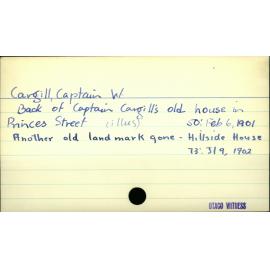 Cargill, Captain W
Back of Captain Cargill's old house in
Princes Street (illus) 50: Feb 6, 1901
Another old landmark gone - Hillside House
73: 3/9, 1902
OTAGO WITNESS